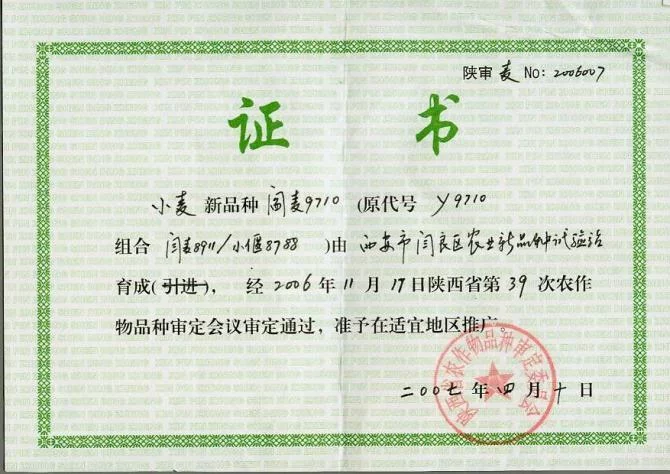 陕审 麦 No: 2006007
证 书
小麦 新品种 阎麦9710 (原代号 y9710
组合 闫麦8911/小偃8788 )由 西安市闫良区农业新品种试验站
育成(引进), 经2006年11月17日陕西省第39次农作
物品种审定会议审定通过,准予在适宜地区推广。
二00七年四月十日
陕西省农作物品种审定委员会